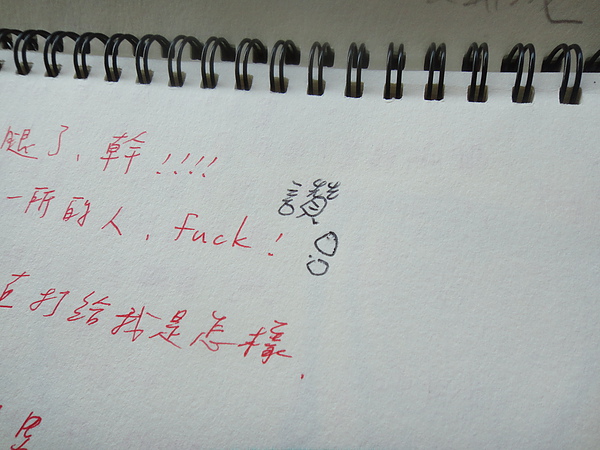 腿了、幹!!!!
一所的人,fuck!
讚
直打給我是怎樣.